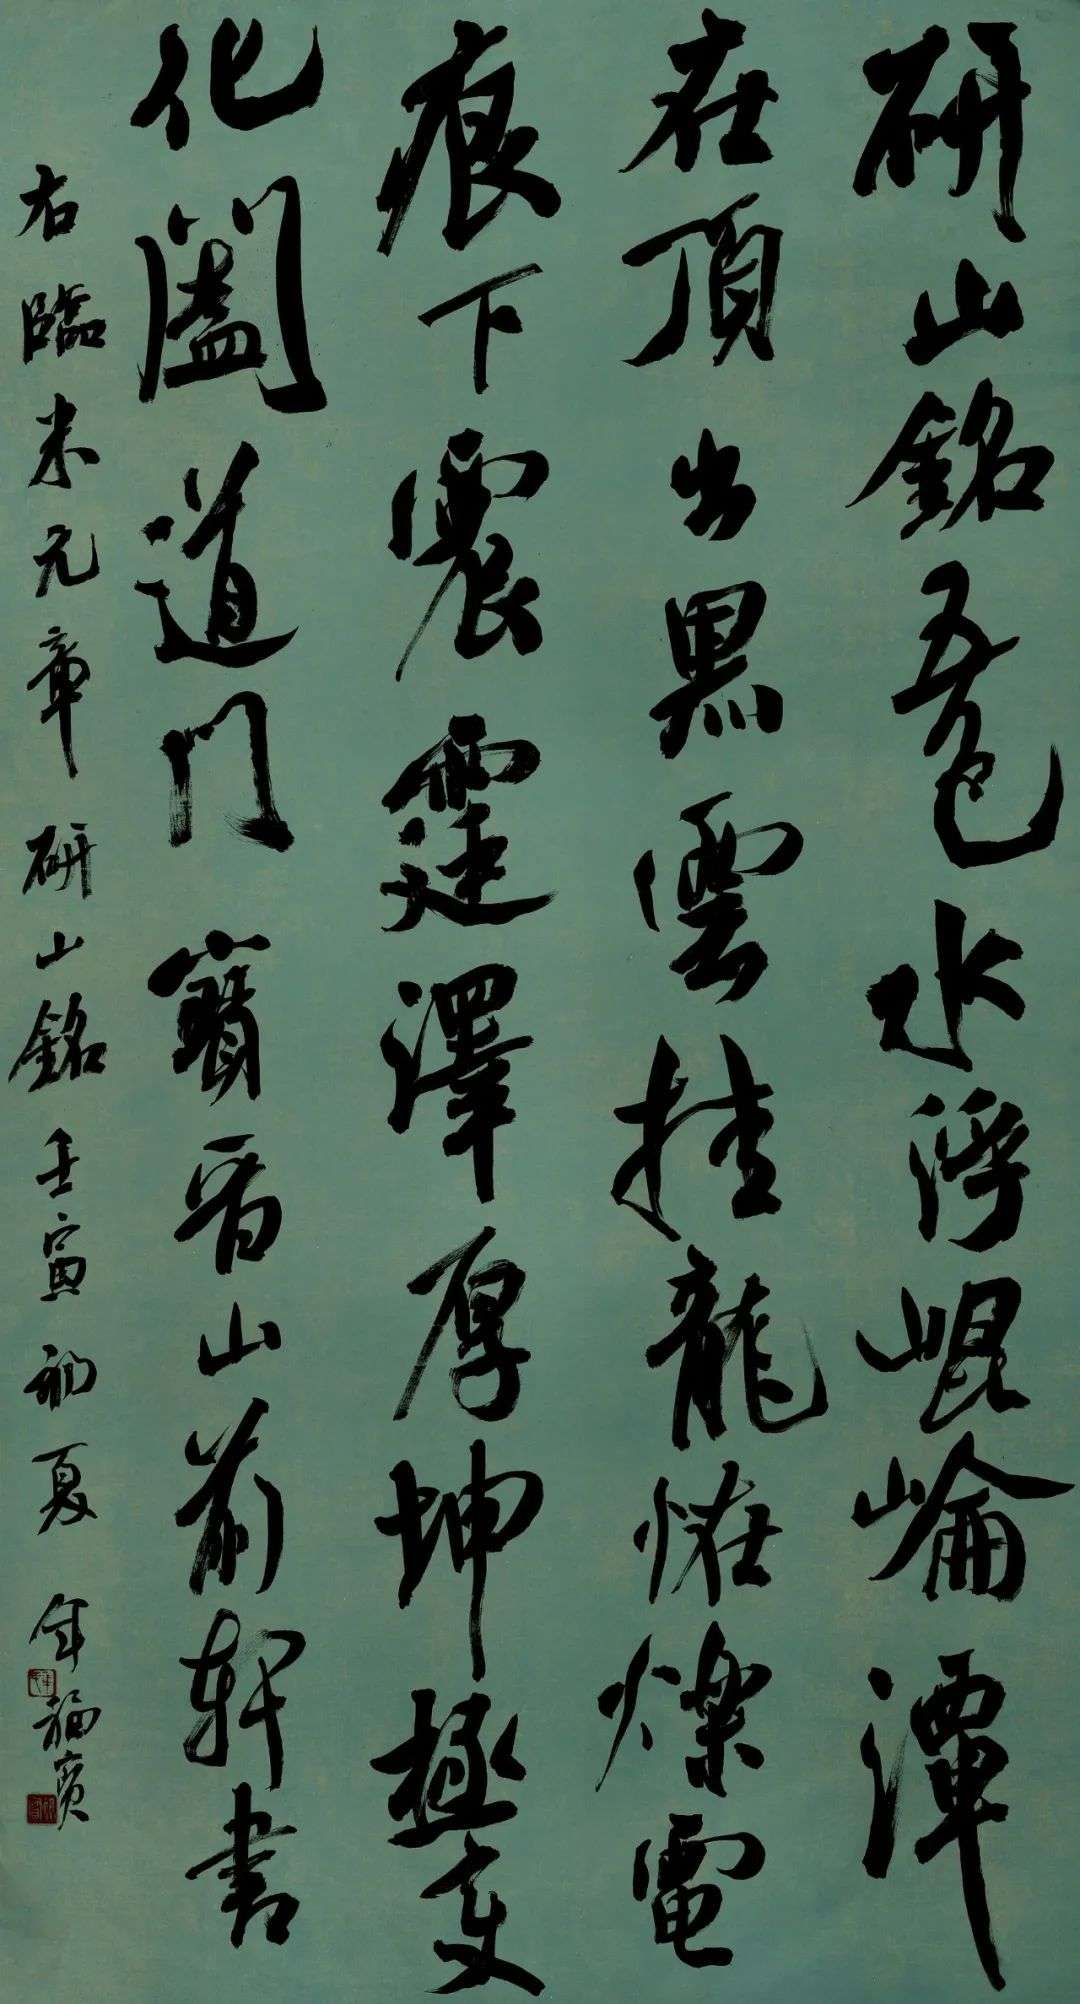 研山銘五色水浮崐崘潭
在頂出黑雲挂龍恠爍電
痕下震霆澤厚坤極变
化闔道門寶晉山前軒書
右臨米元章研山銘壬寅初夏年福寅